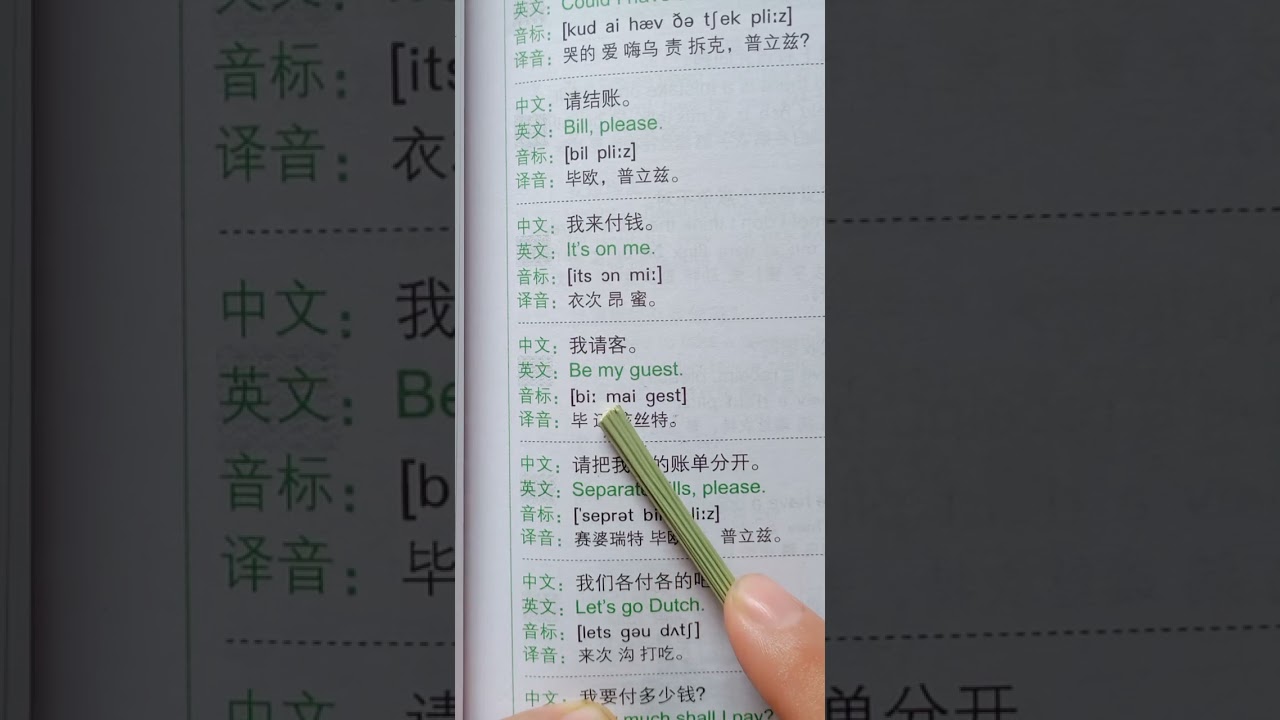 英文：Could I have
音标：[kud ai hæv ðə tʃek pliːz]
译音：哭的 爱 嗨乌 责 拆克，普立兹？
中文：请结账。
英文：Bill, please.
音标：[bil pliːz]
译音：毕欧，普立兹。
中文：我来付钱。
英文：It's on me.
音标：[its ɔn miː]
译音：衣次 昂 蜜。
中文：我请客。
英文：Be my guest.
音标：[biː mai gest]
译音：毕 丝特。
中文：请把我 的账单分开。
英文：Separat ills, please.
音标：['seprət bi liːz]
译音：赛婆瑞特 毕 普立兹。
中文：我们各付各的吧
英文：Let's go Dutch.
音标：[lets gəu dʌtʃ]
译音：来次 沟 打吃。
中文：我要付多少钱？
much shall I pay?